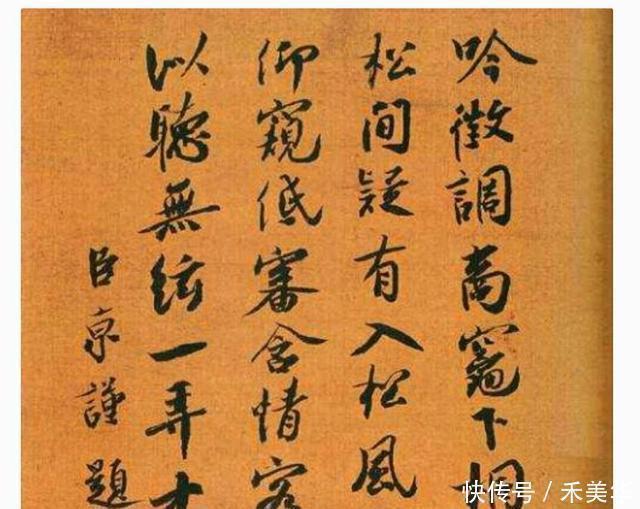 吟徵調商竈下桐
松間疑有入松風
仰窺低審含情客
以聽無絃一弄
臣京謹題
快传号 / 禾美华